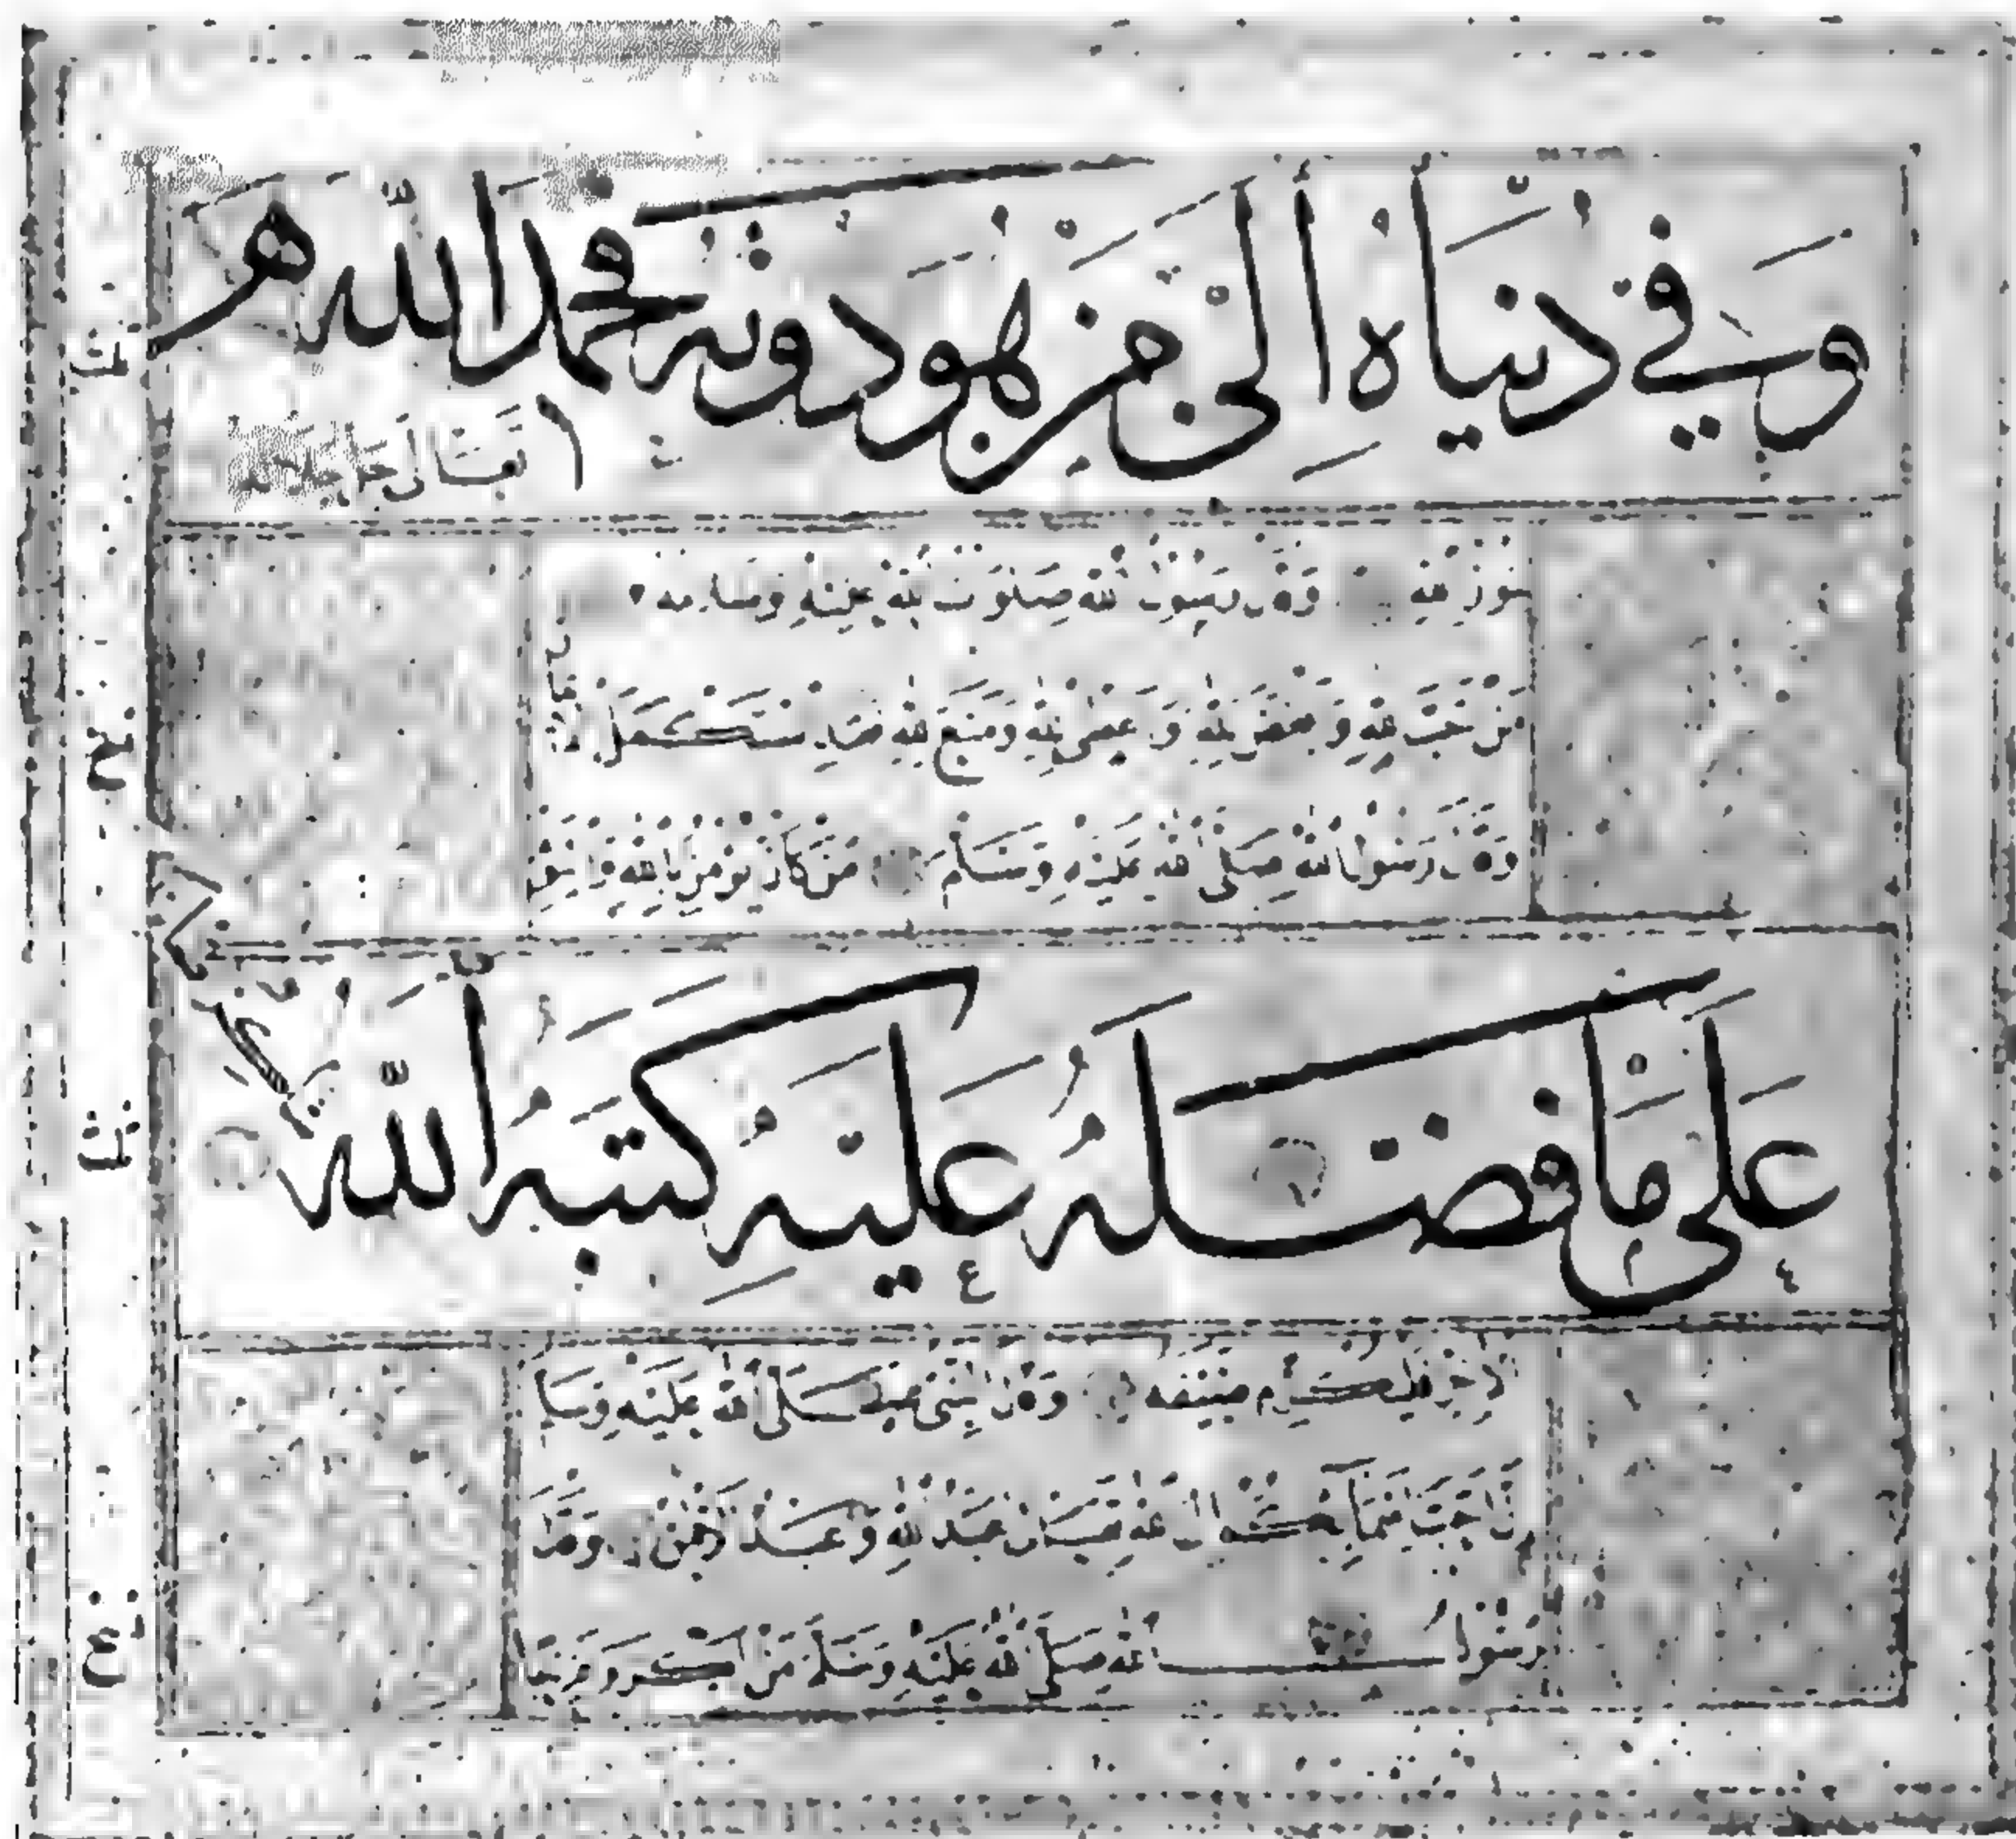 وَفي دُنْيَاهُ إِلىٰ مَنْ هُوَ دُونَهُ فَحَمِدَ اللّٰهَ
تَعَالىٰ جل جلاله
وَقَالَ رَسُولُ اللهِ صَلَوَاتُ اللهِ عَلَيْهِ وَسَلَامُه
مَنْ أَحَبَّ لِلّٰهِ وَأَبْغَضَ لِلّٰهِ وَأَعْطَى لِلّٰهِ وَمَنَعَ لِلّٰهِ فَقَدِ اسْتَكْمَلَ الْإِيمَانَ
وَقَالَ رَسُولُ اللهِ صَلَّى اللهُ عَلَيْهِ وَسَلَّمَ مَنْ كَانَ يُؤْمِنُ بِاللهِ وَالْيَوْمِ
عَلىٰ مَا فَضَّلَهُ عَلَيْهِ كَتَبَهُ اللّٰهُ
الْآخِرِ فَلْيُكْرِمْ ضَيْفَهُ وَقَالَ النَّبِيُّ صَلَّى اللهُ عَلَيْهِ وَسَلَّمَ
إِنَّ أَحَبَّ أَسْمَائِكُمْ إِلَى اللهِ عَبْدُ اللهِ وَعَبْدُ الرَّحْمٰنِ وَقَالَ
رَسُولُ اللهِ صَلَّى اللهُ عَلَيْهِ وَسَلَّمَ مَنْ